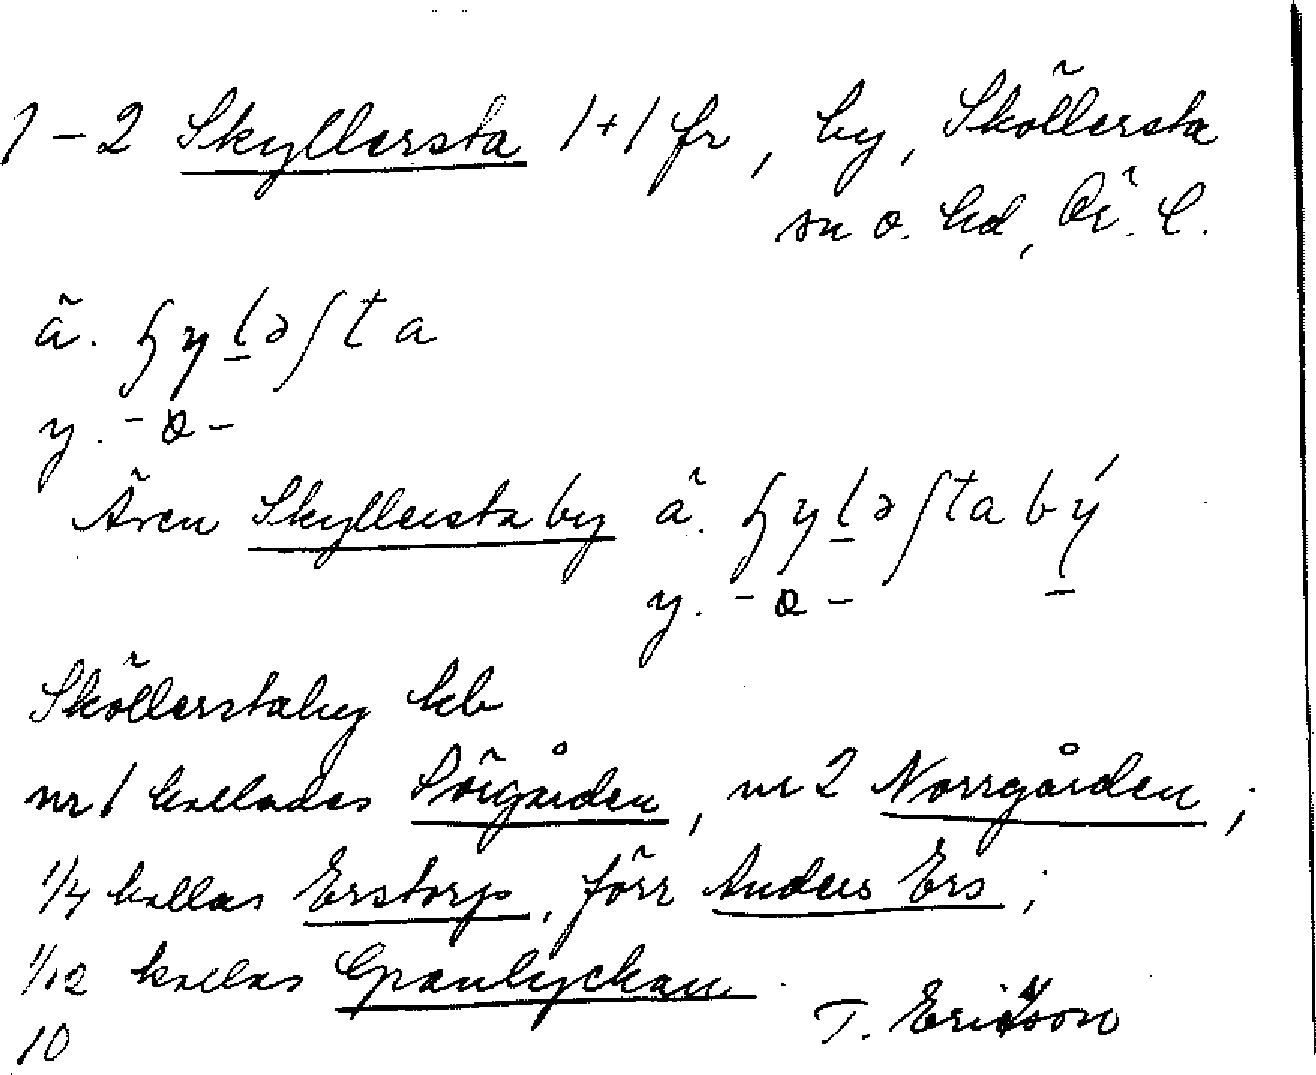 1–2 Skyllersta 1+1 fr, by, Sköllersta
sn o. hd, Ör. l.
ä. ɧyḻəʃta
y. -ɵ-
Även Skyllersta by ä. ɧyḻəʃta bý
y. -ɵ-
Sköllerstaby kb
nr 1 kallades Sörgården, nr 2 Norrgården;
1/4 kallas Erstorp, förr Anders Ers;
1/12 kallas Granlyckan
10 T. Ericsson